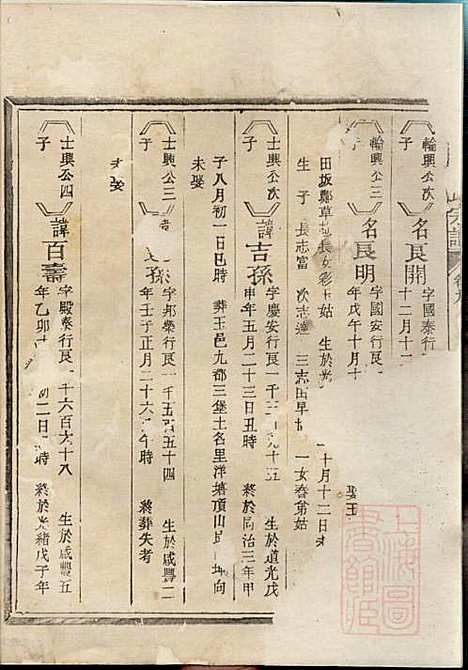 宗譜
卷九
輪興公次子
名良開
字國泰行
十二月十一
輪興公三子
名良明
字國安行良
年戊午十月十
娶王
田坂鄭草
長女彩玉姑 生於光
十月十二日
生子 長志富 次志達 三志田早
一女春弟姑
士興公次子
諱吉孫
字慶安行良一千
九十五 生於道光戊
申年五月二十三日丑時 終於同治三年甲
子八月初一日巳時 葬王邑九都三堡土名里洋塘頂山
向
未娶
士興公三子
孫
字邦榮行良一千五
五十四 生於咸豐二
年壬子正月二十六
午時 終葬失考
才公
士興公四子
諱百壽
字殿泰行良一千六百六十八 生於咸豐五
年乙卯
初二日
時 終於光緒戊子年
上海圖書館藏